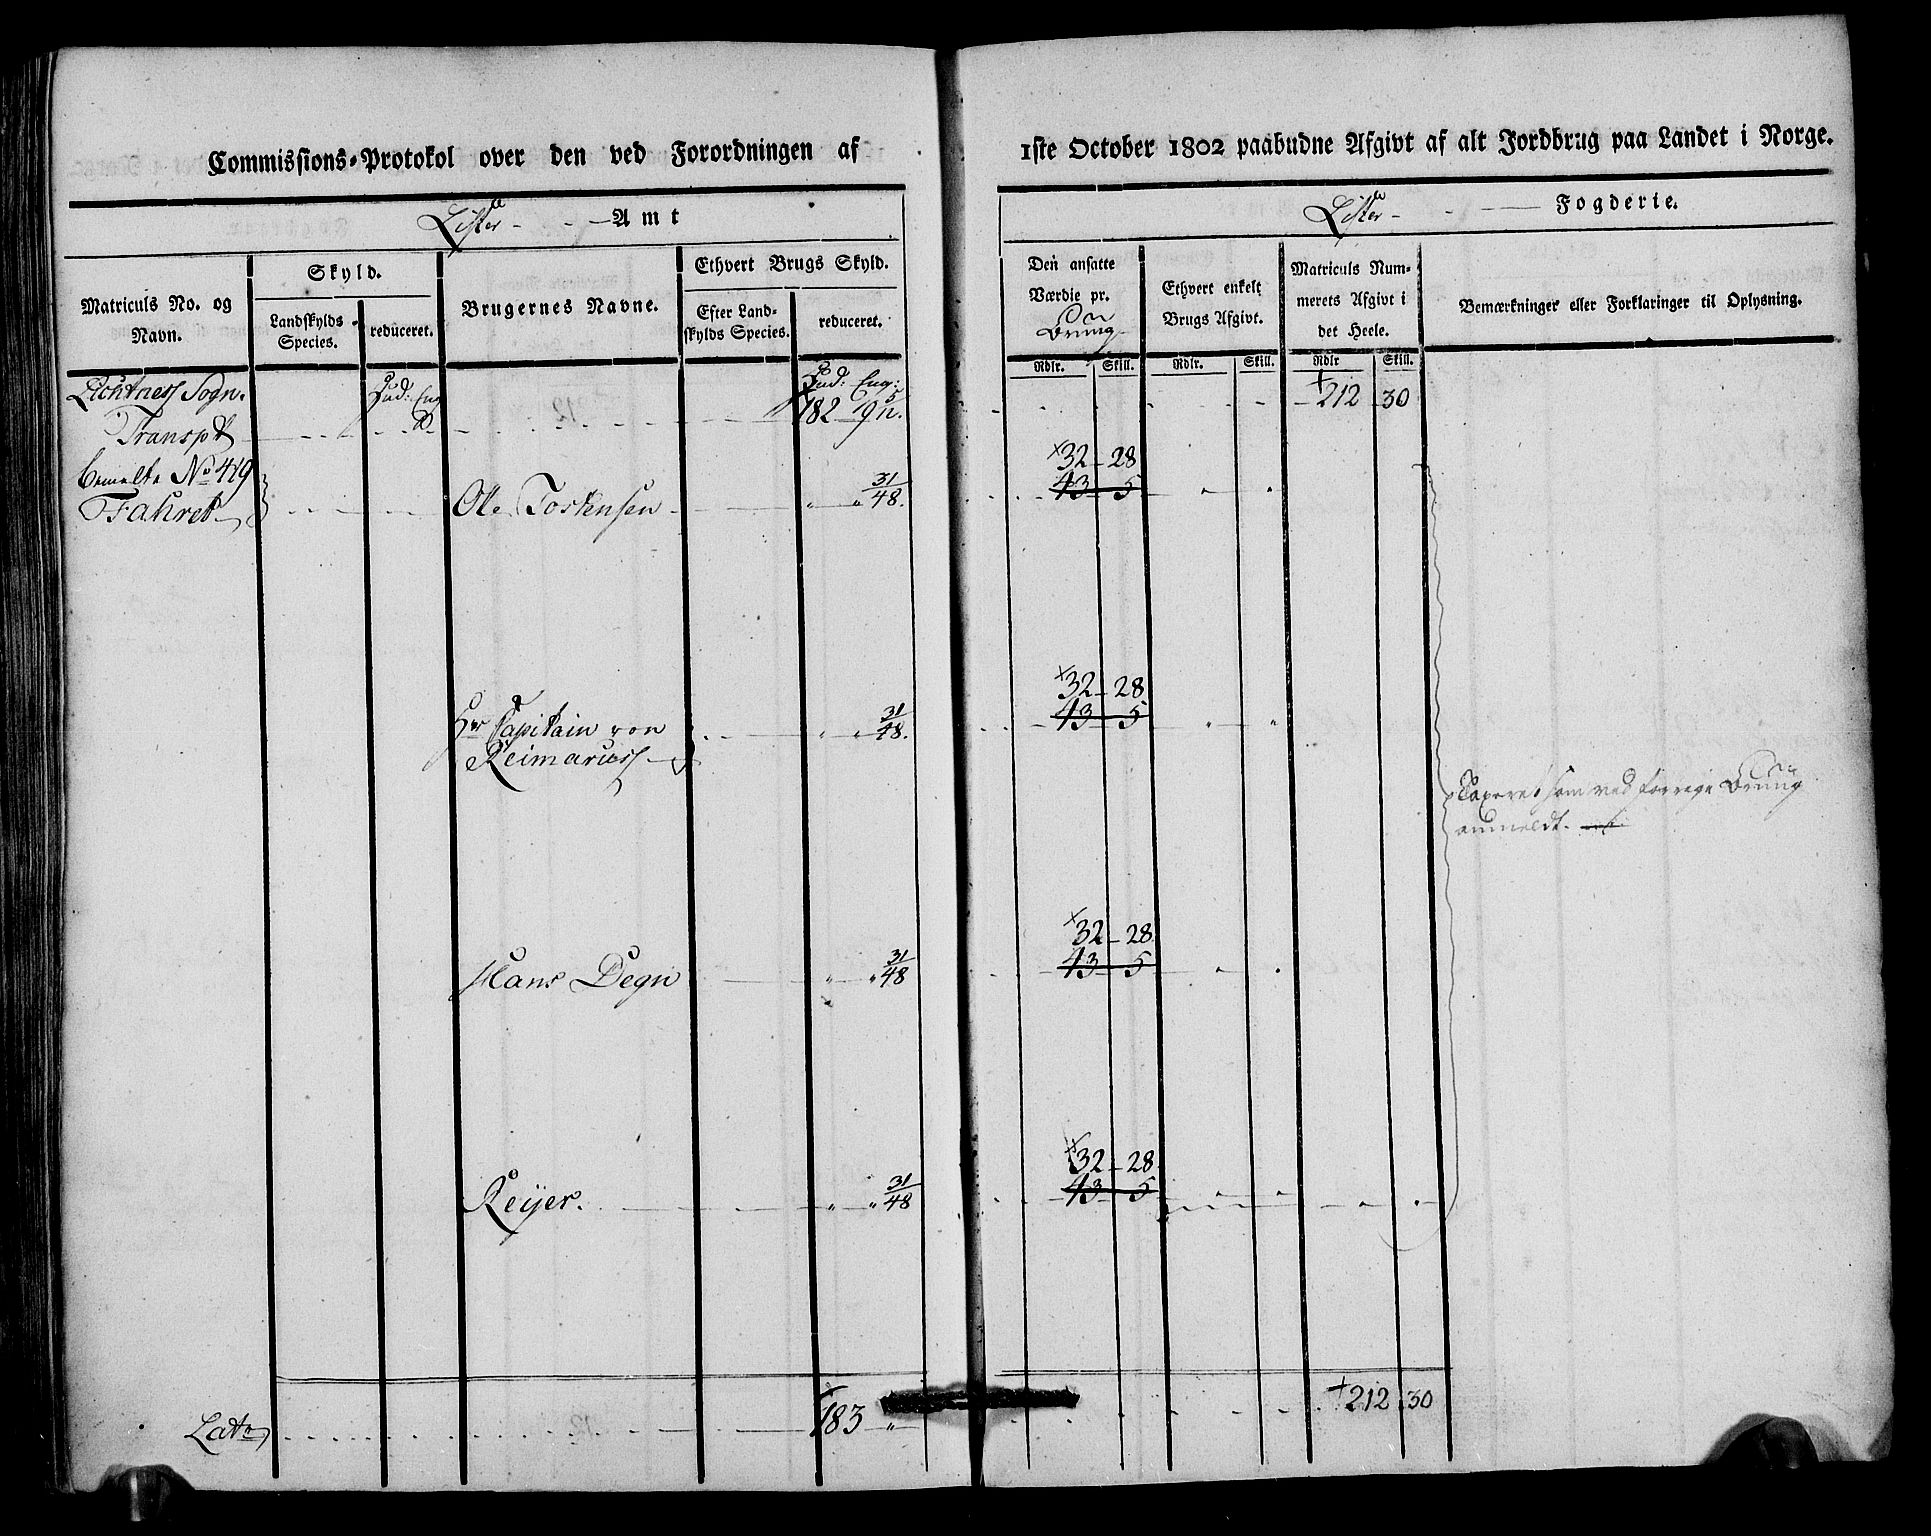 Commissions-Protokol over den ved Forordningen af
Lister Amt
Matriculs No. og Navn.
Skyld.
Landskylds Species.
reduceret.
Brugernes Navne.
Ethvert Brugs Skyld.
Efter Landskylds Species.
reduceret.
Sogn. Hud: Eng Hud: Eng:
Transpt 182 9 5/12.
bemelte No 419
Fahret Ole Tostensen " " 31/48.
Hr Capitain von " " 31/48.
Reimaruss
Hans Degn " " 31/48
Reijer. " " 31/48
Lat 183 "
1ste October 1802 paabudne Afgivt af alt Jordbrug paa Landet i Norge.
Lister Fogderie.
Den ansatte Værdie pr. Brug
Ethvert enkelt Brugs Afgivt.
Matriculs Nummerets Afgivt i det Heele.
Bemærkninger eller Forklaringer til Oplysning.
Rdlr. Skill. Rdlr. Skill. Rdlr Skill.
212 30
32 28
43 5
32 28
43 5
Taxeret som ved forrige Brug
anmeldt.
32 28
43 5
32 28
43 5
212 30